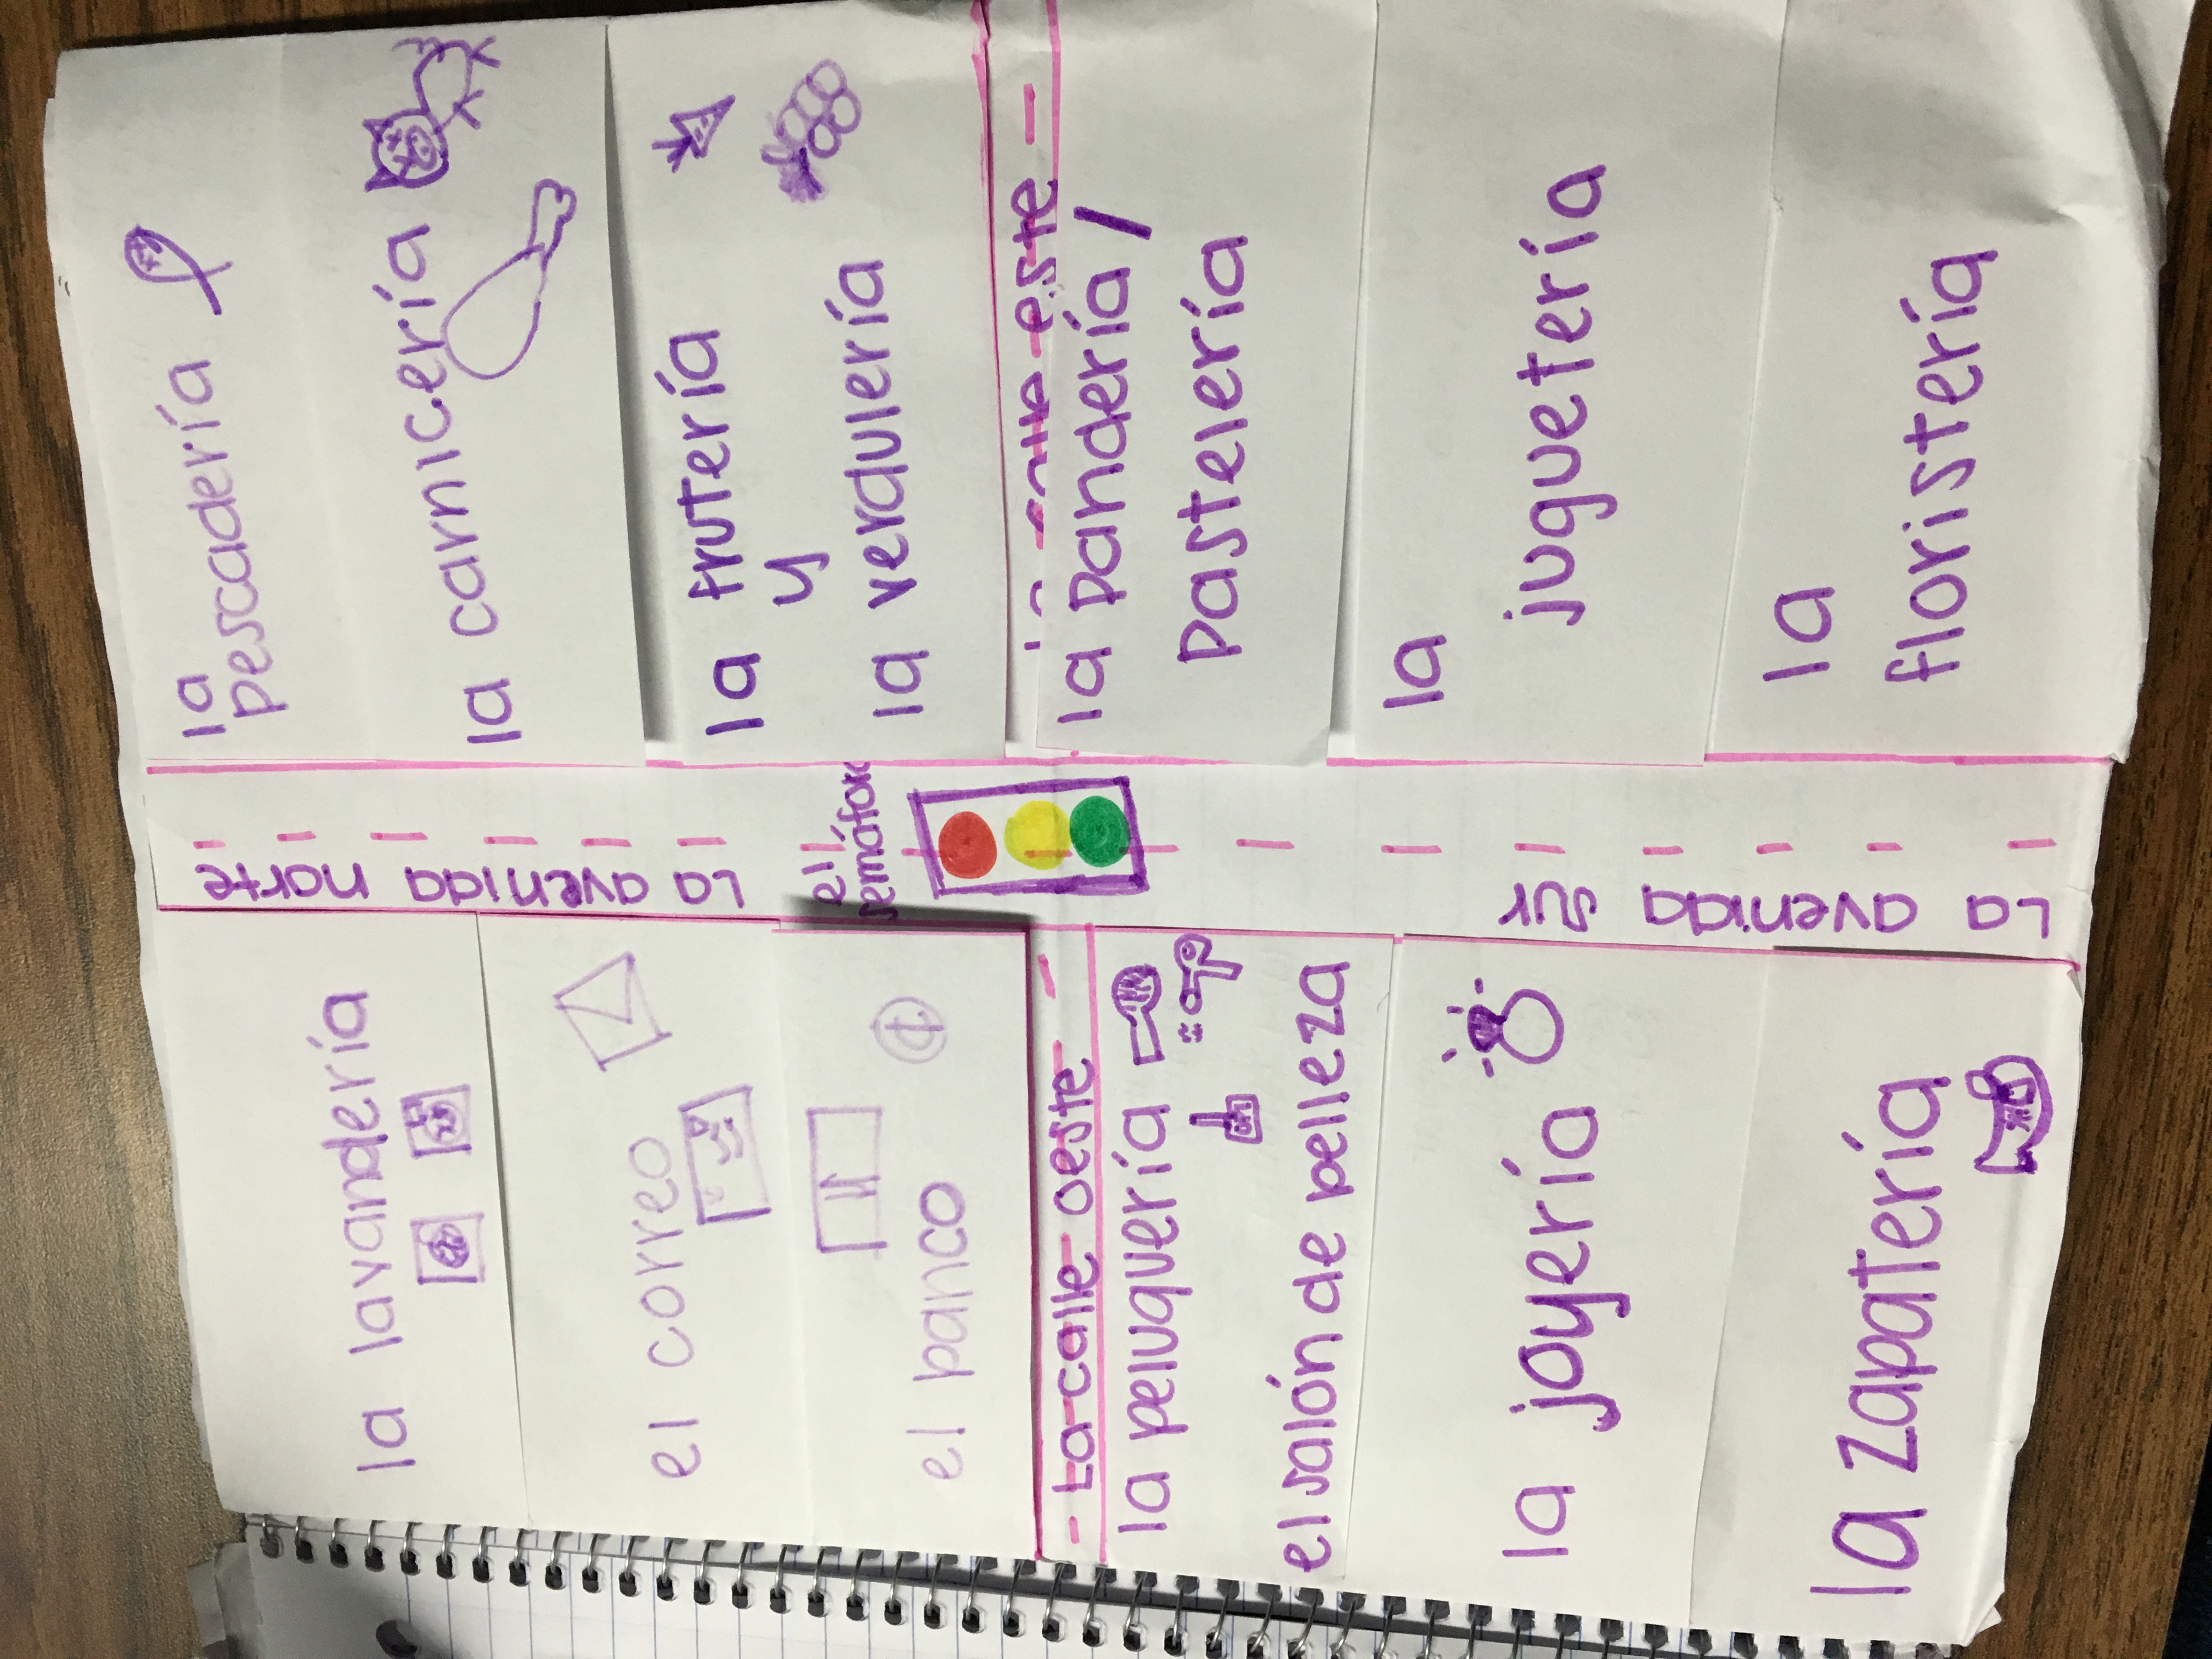 la lavandería
el correo
el banco
La calle oeste
la peluquería
el salón de belleza
la joyería
la zapatería
La avenida norte
el
semáforo
La avenida sur
la
pescadería
la carnicería
la frutería
y
la verdulería
la calle este
la pandería /
pastelería
la
juguetería
la
floristería